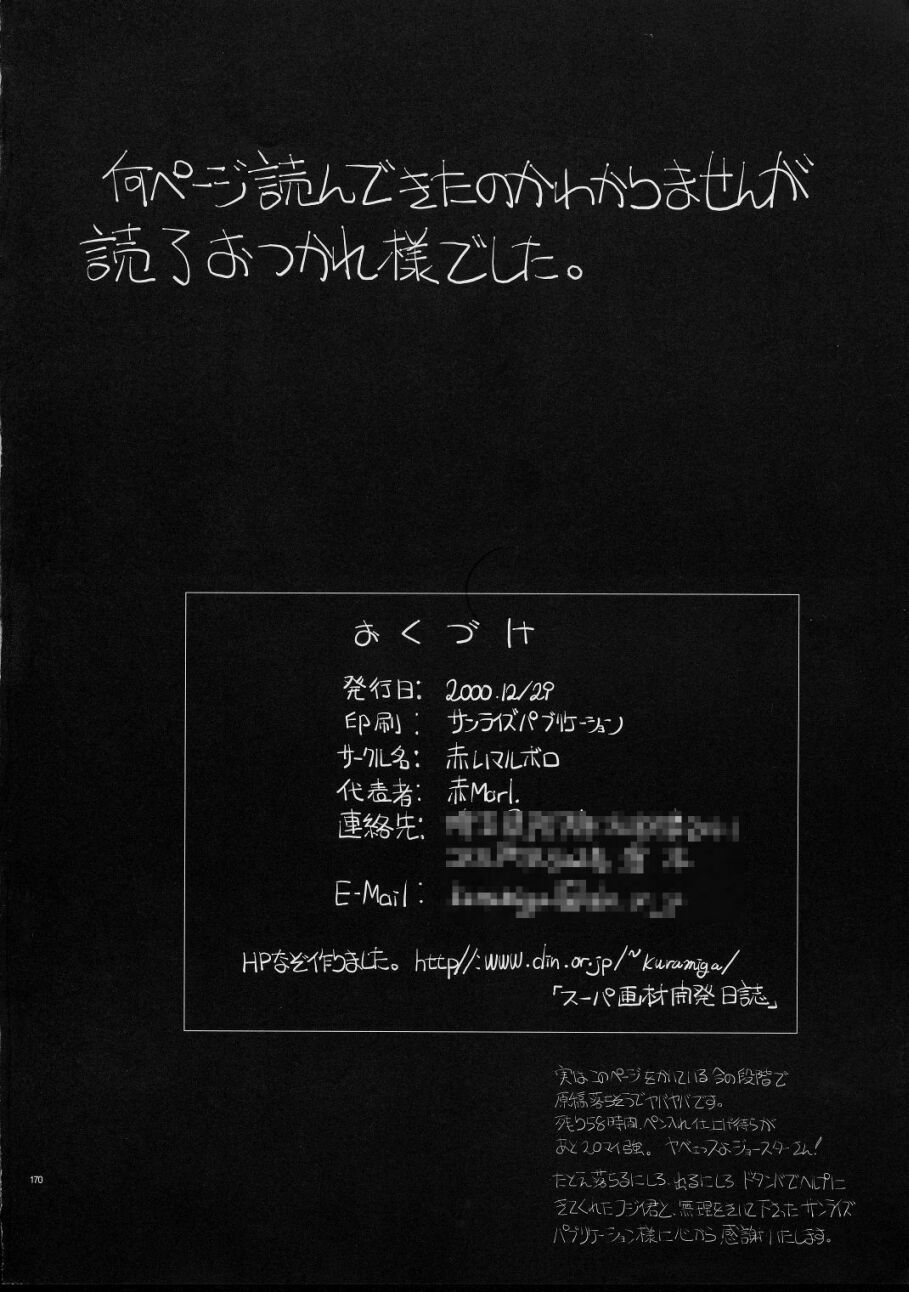 何ページ読んできたのかわかりませんが
読了おつかれ様でした。
おくづけ
発行日: 2000.12/29
印刷: サンライズパブリケーション
サークル名: 赤いマルボロ
代表者: 赤Marl.
連絡先:
E-Mail:
HPなぞ作りました。http//:www.din.or.jp/~kuramiga/
「スーパ画材開発日誌」
実はこのページをかいている今の段階で
原稿落ちそうでヤバヤバです。
残り58時間、ペン入れ仕上げ待ちが
あと20マイ強。ヤベェっスよジョースターさん!
たとえ落ちるにしろ、出るにしろ ドタンバでヘルプに
きてくれたフジイ君と、無理をきいて下さったサンライズ
パブリケーション様に心から感謝いたします。
170